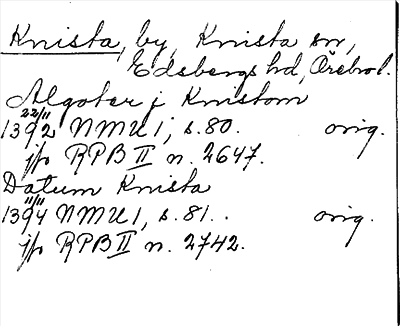 Knista, by, Knista sn,
Edsbergs hd, Örebro l.
Algoter j Knistom
22/11
1392 NMU 1, s. 80. orig.
jfr RPB II n. 2647.
Datum Knista
11/11
1394 NMU 1, s. 81. orig.
jfr RPB II n. 2742.